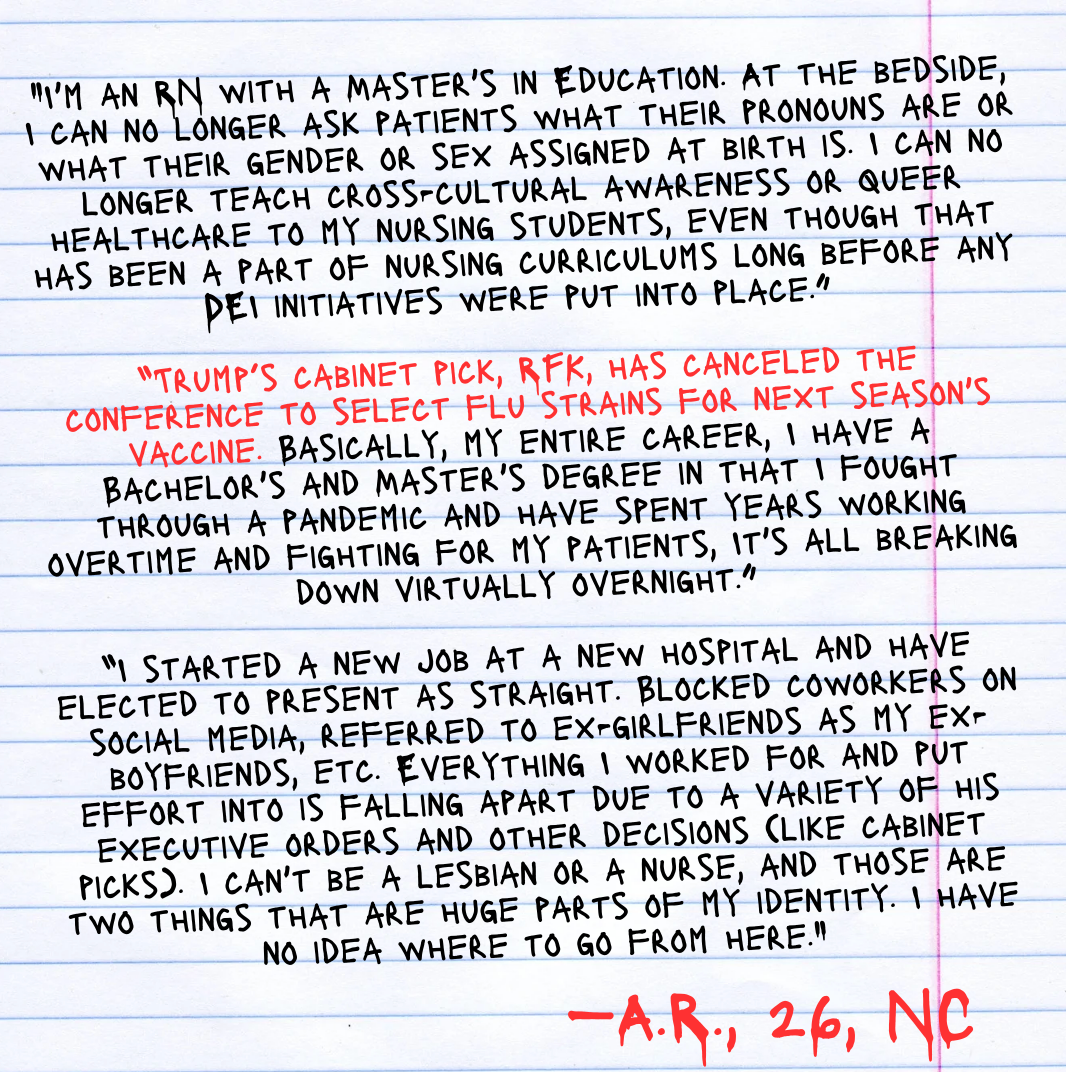 "I'M AN RN WITH A MASTER'S IN EDUCATION. AT THE BEDSIDE,
I CAN NO LONGER ASK PATIENTS WHAT THEIR PRONOUNS ARE OR
WHAT THEIR GENDER OR SEX ASSIGNED AT BIRTH IS. I CAN NO
LONGER TEACH CROSS-CULTURAL AWARENESS OR QUEER
HEALTHCARE TO MY NURSING STUDENTS, EVEN THOUGH THAT
HAS BEEN A PART OF NURSING CURRICULUMS LONG BEFORE ANY
DEI INITIATIVES WERE PUT INTO PLACE."
"TRUMP'S CABINET PICK, RFK, HAS CANCELED THE
CONFERENCE TO SELECT FLU STRAINS FOR NEXT SEASON'S
VACCINE. BASICALLY, MY ENTIRE CAREER, I HAVE A
BACHELOR'S AND MASTER'S DEGREE IN THAT I FOUGHT
THROUGH A PANDEMIC AND HAVE SPENT YEARS WORKING
OVERTIME AND FIGHTING FOR MY PATIENTS, IT'S ALL BREAKING
DOWN VIRTUALLY OVERNIGHT."
"I STARTED A NEW JOB AT A NEW HOSPITAL AND HAVE
ELECTED TO PRESENT AS STRAIGHT. BLOCKED COWORKERS ON
SOCIAL MEDIA, REFERRED TO EX-GIRLFRIENDS AS MY EX-
BOYFRIENDS, ETC. EVERYTHING I WORKED FOR AND PUT
EFFORT INTO IS FALLING APART DUE TO A VARIETY OF HIS
EXECUTIVE ORDERS AND OTHER DECISIONS (LIKE CABINET
PICKS). I CAN'T BE A LESBIAN OR A NURSE, AND THOSE ARE
TWO THINGS THAT ARE HUGE PARTS OF MY IDENTITY. I HAVE
NO IDEA WHERE TO GO FROM HERE."
—A.R., 26, NC